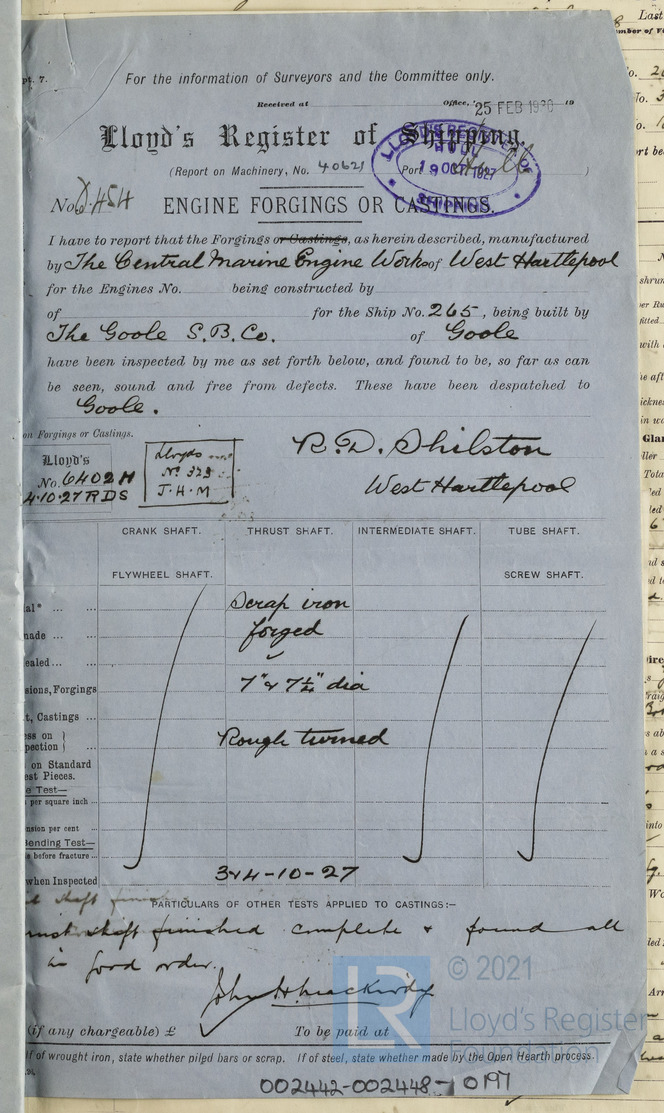 pt. 7.
For the information of Surveyors and the Committee only.
Received at Office, 25 FEB 1930 19
Lloyd's Register of Shipping.
(Report on Machinery, No. 40621 Port Hull )
LLOYD'S REGISTER OF
HULL
19 OCT 1927
SHIPPING
No. 8454 ENGINE FORGINGS OR CASTINGS.
I have to report that the Forgings or Castings, as herein described, manufactured
by The Central Marine Engine Works of West Hartlepool
for the Engines No. being constructed by
of for the Ship No. 265, being built by
The Goole S.B. Co. of Goole
have been inspected by me as set forth below, and found to be, so far as can
be seen, sound and free from defects. These have been despatched to
Goole.
on Forgings or Castings.
Lloyd's
No. 6402H
4.10.27 RDS
Lloyds
No 323
J.H.M
R.D. Shilston
West Hartlepool
CRANK SHAFT. THRUST SHAFT. INTERMEDIATE SHAFT. TUBE SHAFT.
FLYWHEEL SHAFT. SCREW SHAFT.
al* ... ... Scrap iron
made ... ... forged
ealed ... ...
sions, Forgings 7" & 7¼" dia
t, Castings ...
ess on }
pection } ... Rough turned
on Standard
est Pieces.
e Test—
per square inch ...
nsion per cent ...
Bending Test—
s before fracture ...
when Inspected 3&4-10-27
PARTICULARS OF OTHER TESTS APPLIED TO CASTINGS:—
shaft finished complete & found all
in good order.
John H. Mackirdy
(if any chargeable) £ To be paid at
If of wrought iron, state whether piled bars or scrap. If of steel, state whether made by the Open Hearth process.
002442-002448-0197
© 2021
Lloyd's Register
Foundation